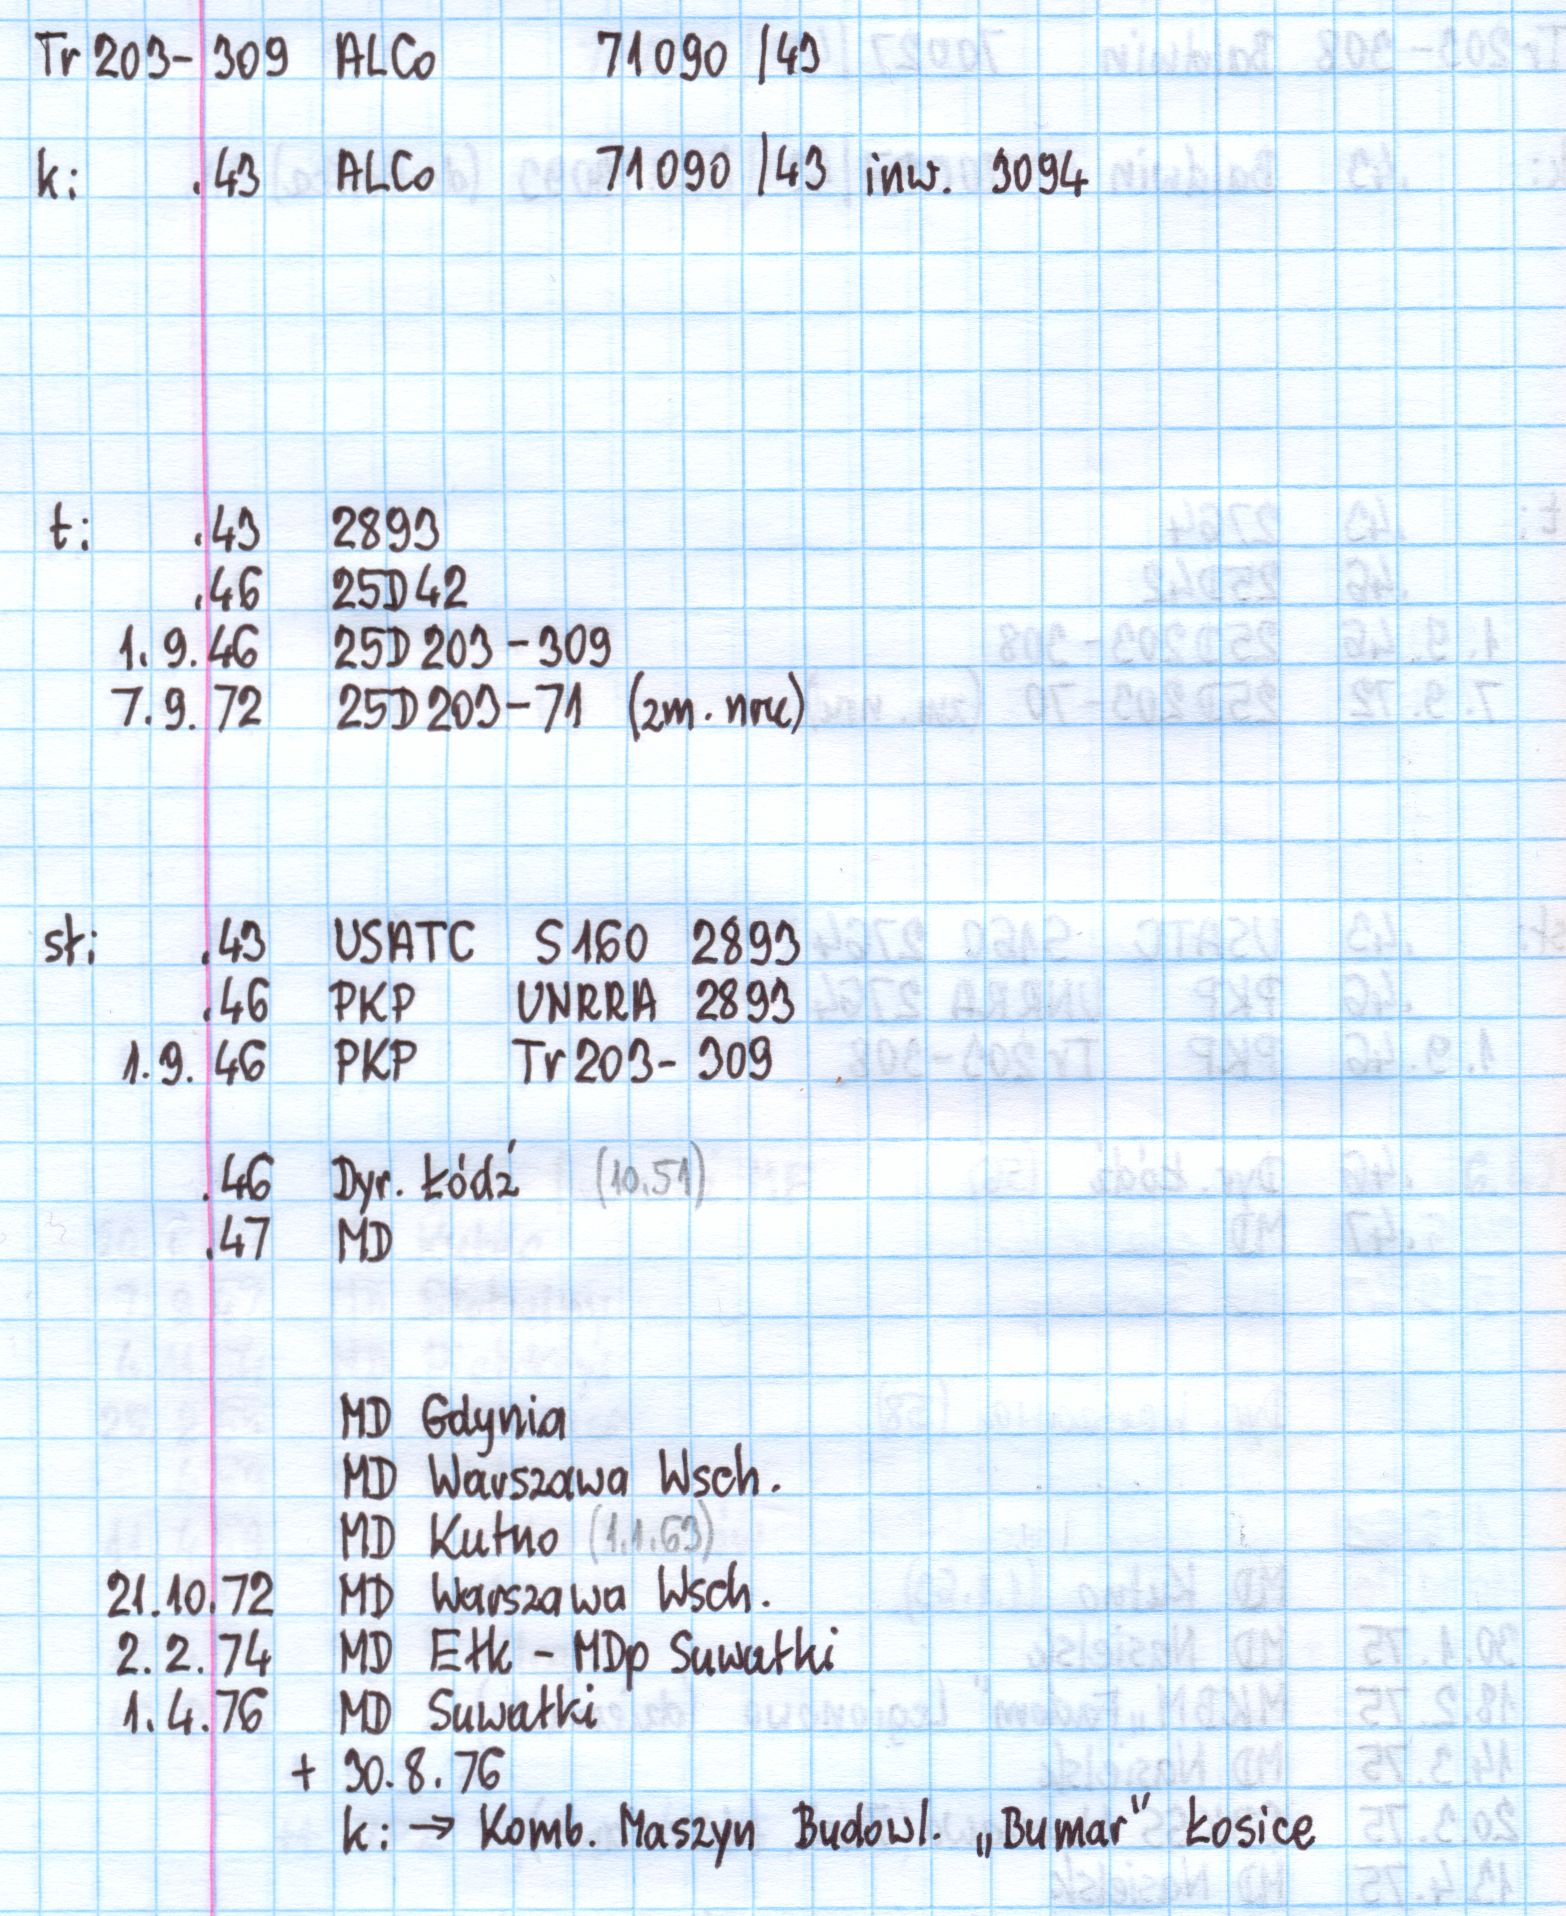 Tr 203- 309 ALCo 71090 /43
k: .43 ALCo 71090 /43 inw. 3094
t: .43 2893
.46 25D42
1.9.46 25D203-309
7.9.72 25D203-71 (zm. nru)
sł: .43 USATC S160 2893
.46 PKP UNRRA 2893
1.9.46 PKP Tr203-309
.46 Dyr. Łódź (10.51)
.47 MD
MD Gdynia
MD Warszawa Wsch.
MD Kutno (1.1.63)
21.10.72 MD Warszawa Wsch.
2.2.74 MD Ełk - MDp Suwałki
1.4.76 MD Suwałki
+ 30.8.76
k: → Komb. Maszyn Budowl. „Bumar" Łosice